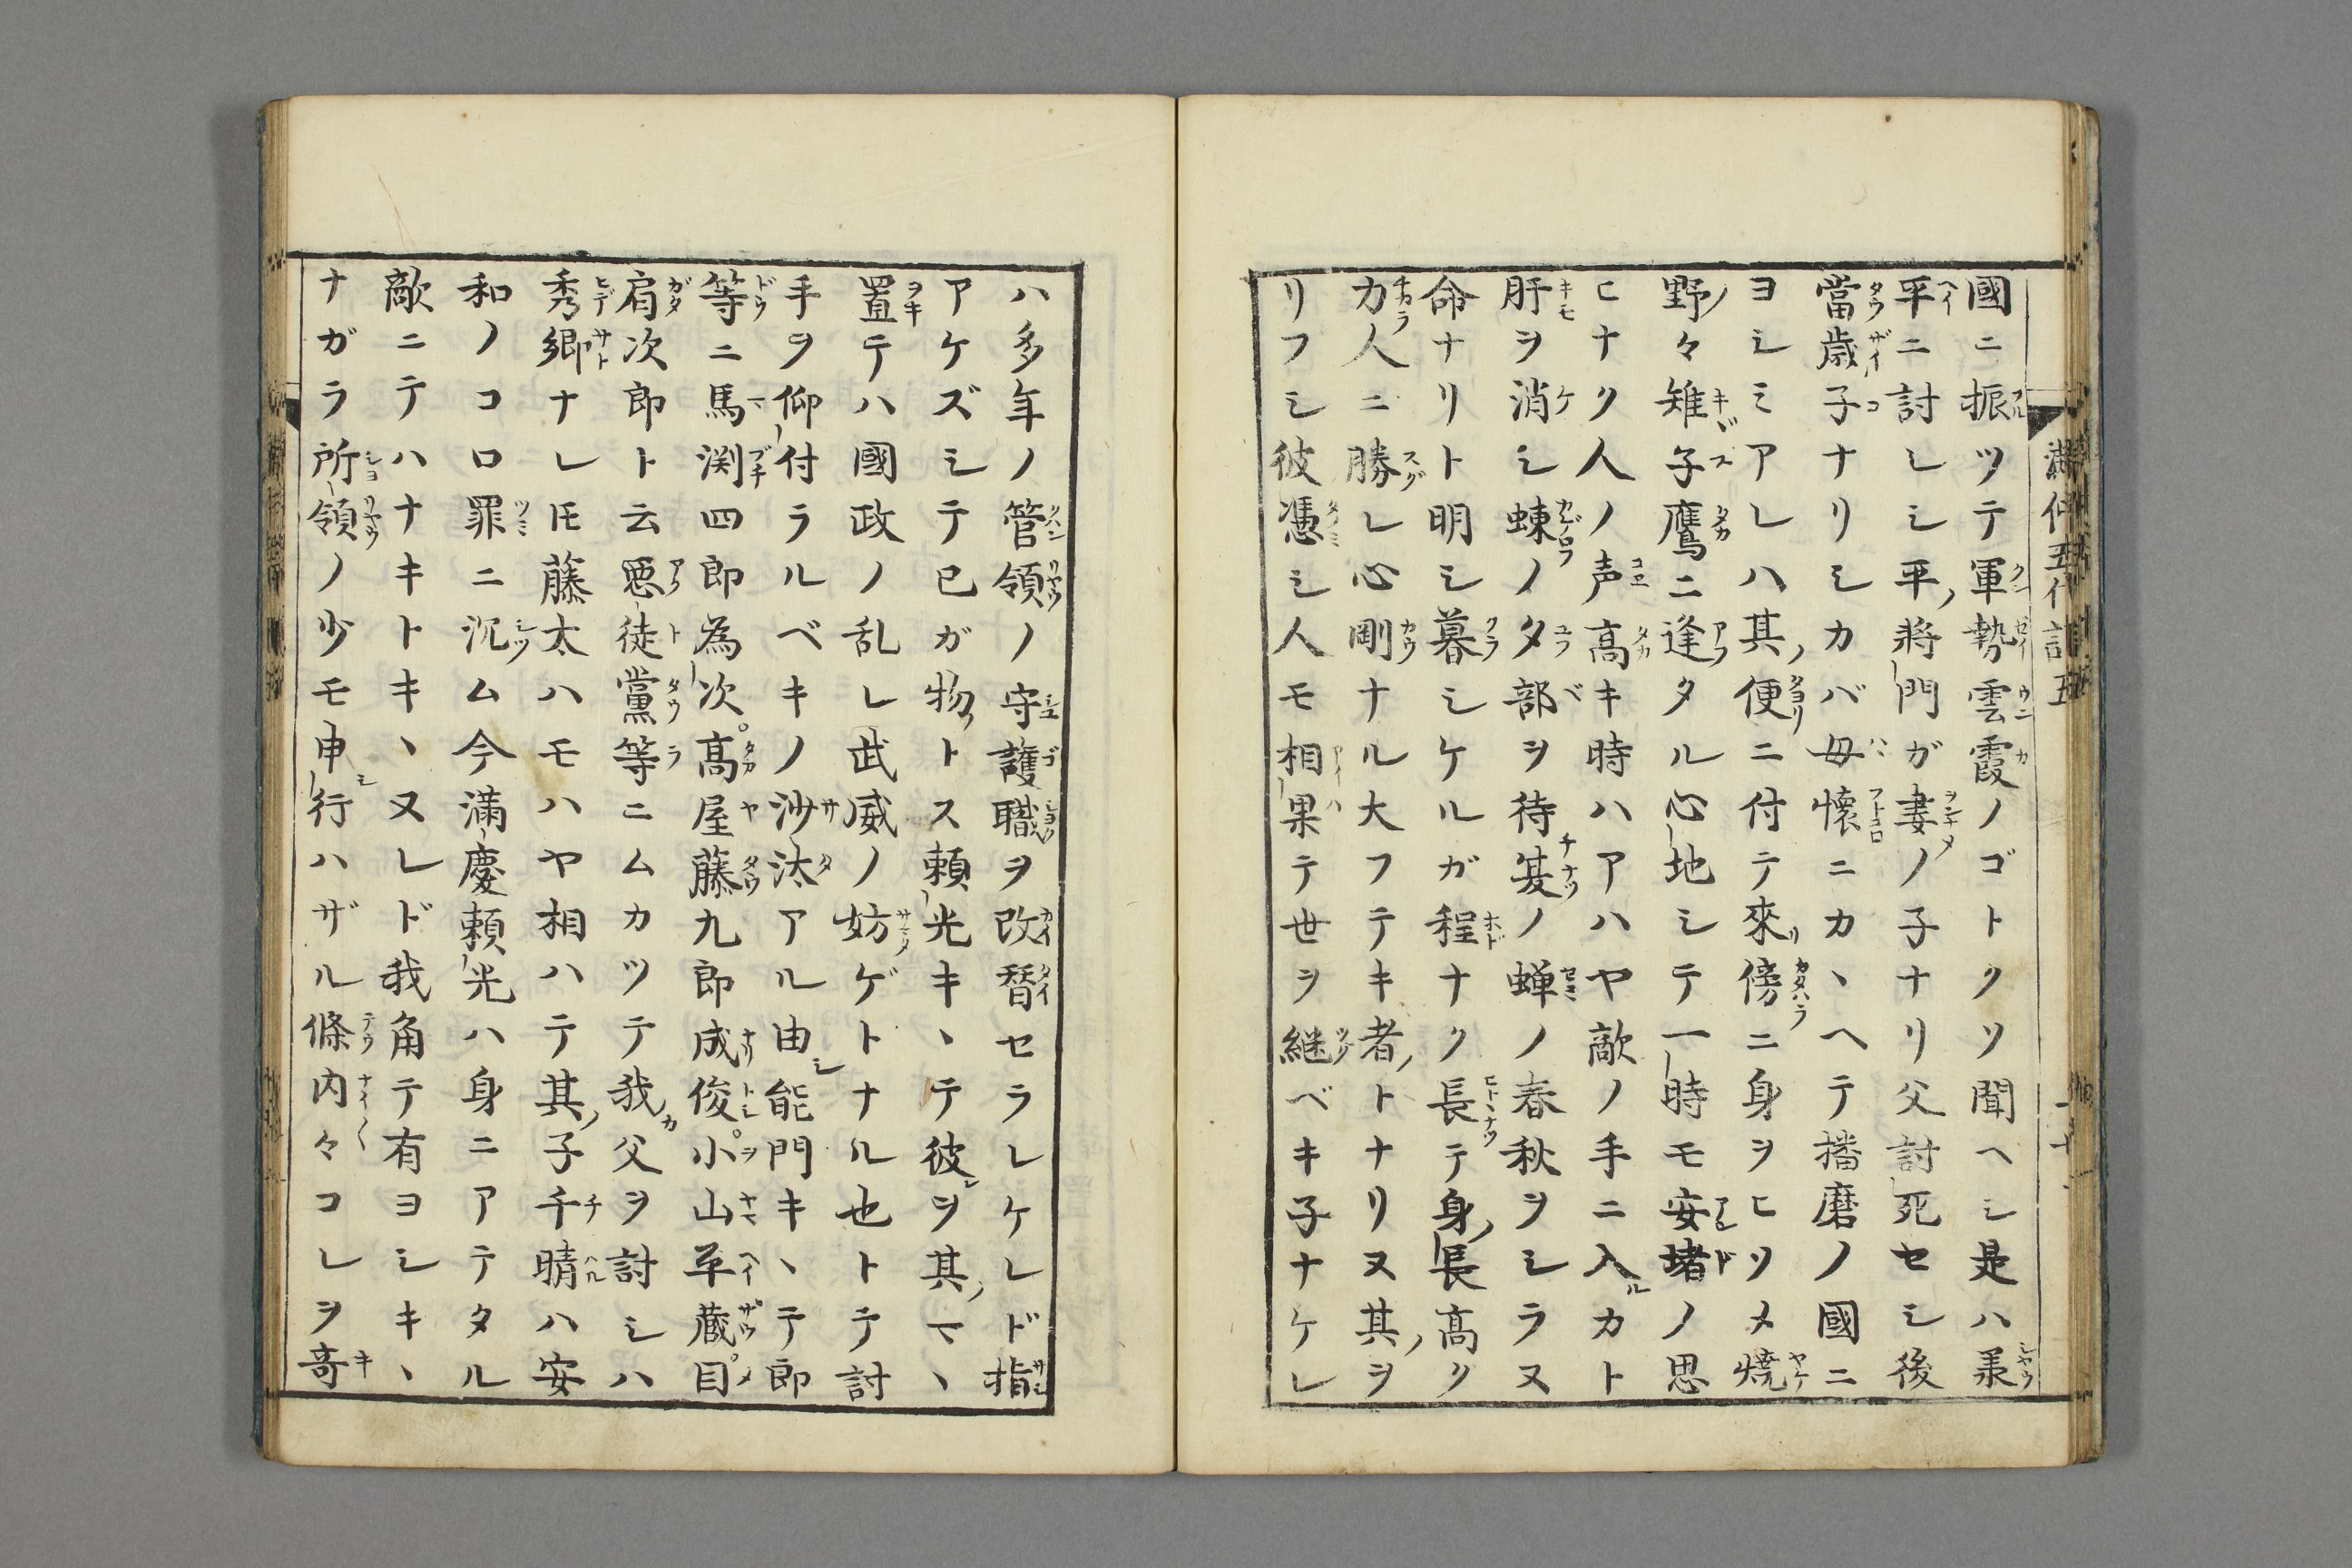 國ニ振ツテ軍勢雲霞ノゴトクソ聞ヘシ是ハ羕
平ニ討レシ平將門ガ妻ノ子ナリ父討死セシ後
當歳子ナリシカバ母懐ニカヽヘテ播磨ノ國ニ
ヨシミアレハ其便ニ付テ來傍ニ身ヲヒソメ焼
野々雉子鷹ニ逢タル心地シテ一時モ安堵ノ思
ヒナク人ノ声高キ時ハアハヤ敵ノ手ニ入カト
肝ヲ消シ蜉ノタ部ヲ待ノ蝉ノ春秋ヲシラヌ
命ナリト明シ暮シケルガ程ナク長テ身長高ク
力人ニ勝レ心剛ナル大フテキ者トナリヌ其ヲ
リフシ彼憑シ人モ相果テ世ヲ継ベキ子ナケレ
ハ多年ノ管領ノ守護職ヲ改替セラレケレド指
アケズシテ已ガ物トス頼光キヽテ彼ヲ其マヽ
置テハ國政ノ乱レ武威ノ妨ゲトナル也トテ討
手ヲ仰付ラルベキノ沙汰アル由能門キヽテ郎
等ニ馬渕四郎為次高屋藤九郎成俊小山平蔵目
肩次郎ト云悪徒黨等ニムカツテ我父ヲ討シハ
秀郷ナレ𪜈藤太ハモハヤ相ハテ其子千晴ハ安
和ノコロ罪ニ沉ム今満慶頼光ハ身ニアテタル
敵ニテハナキトキヽヌレド我角テ有ヨシキヽ
ナガラ所領ノ少モ申行ハザル條内々コレヲ奇